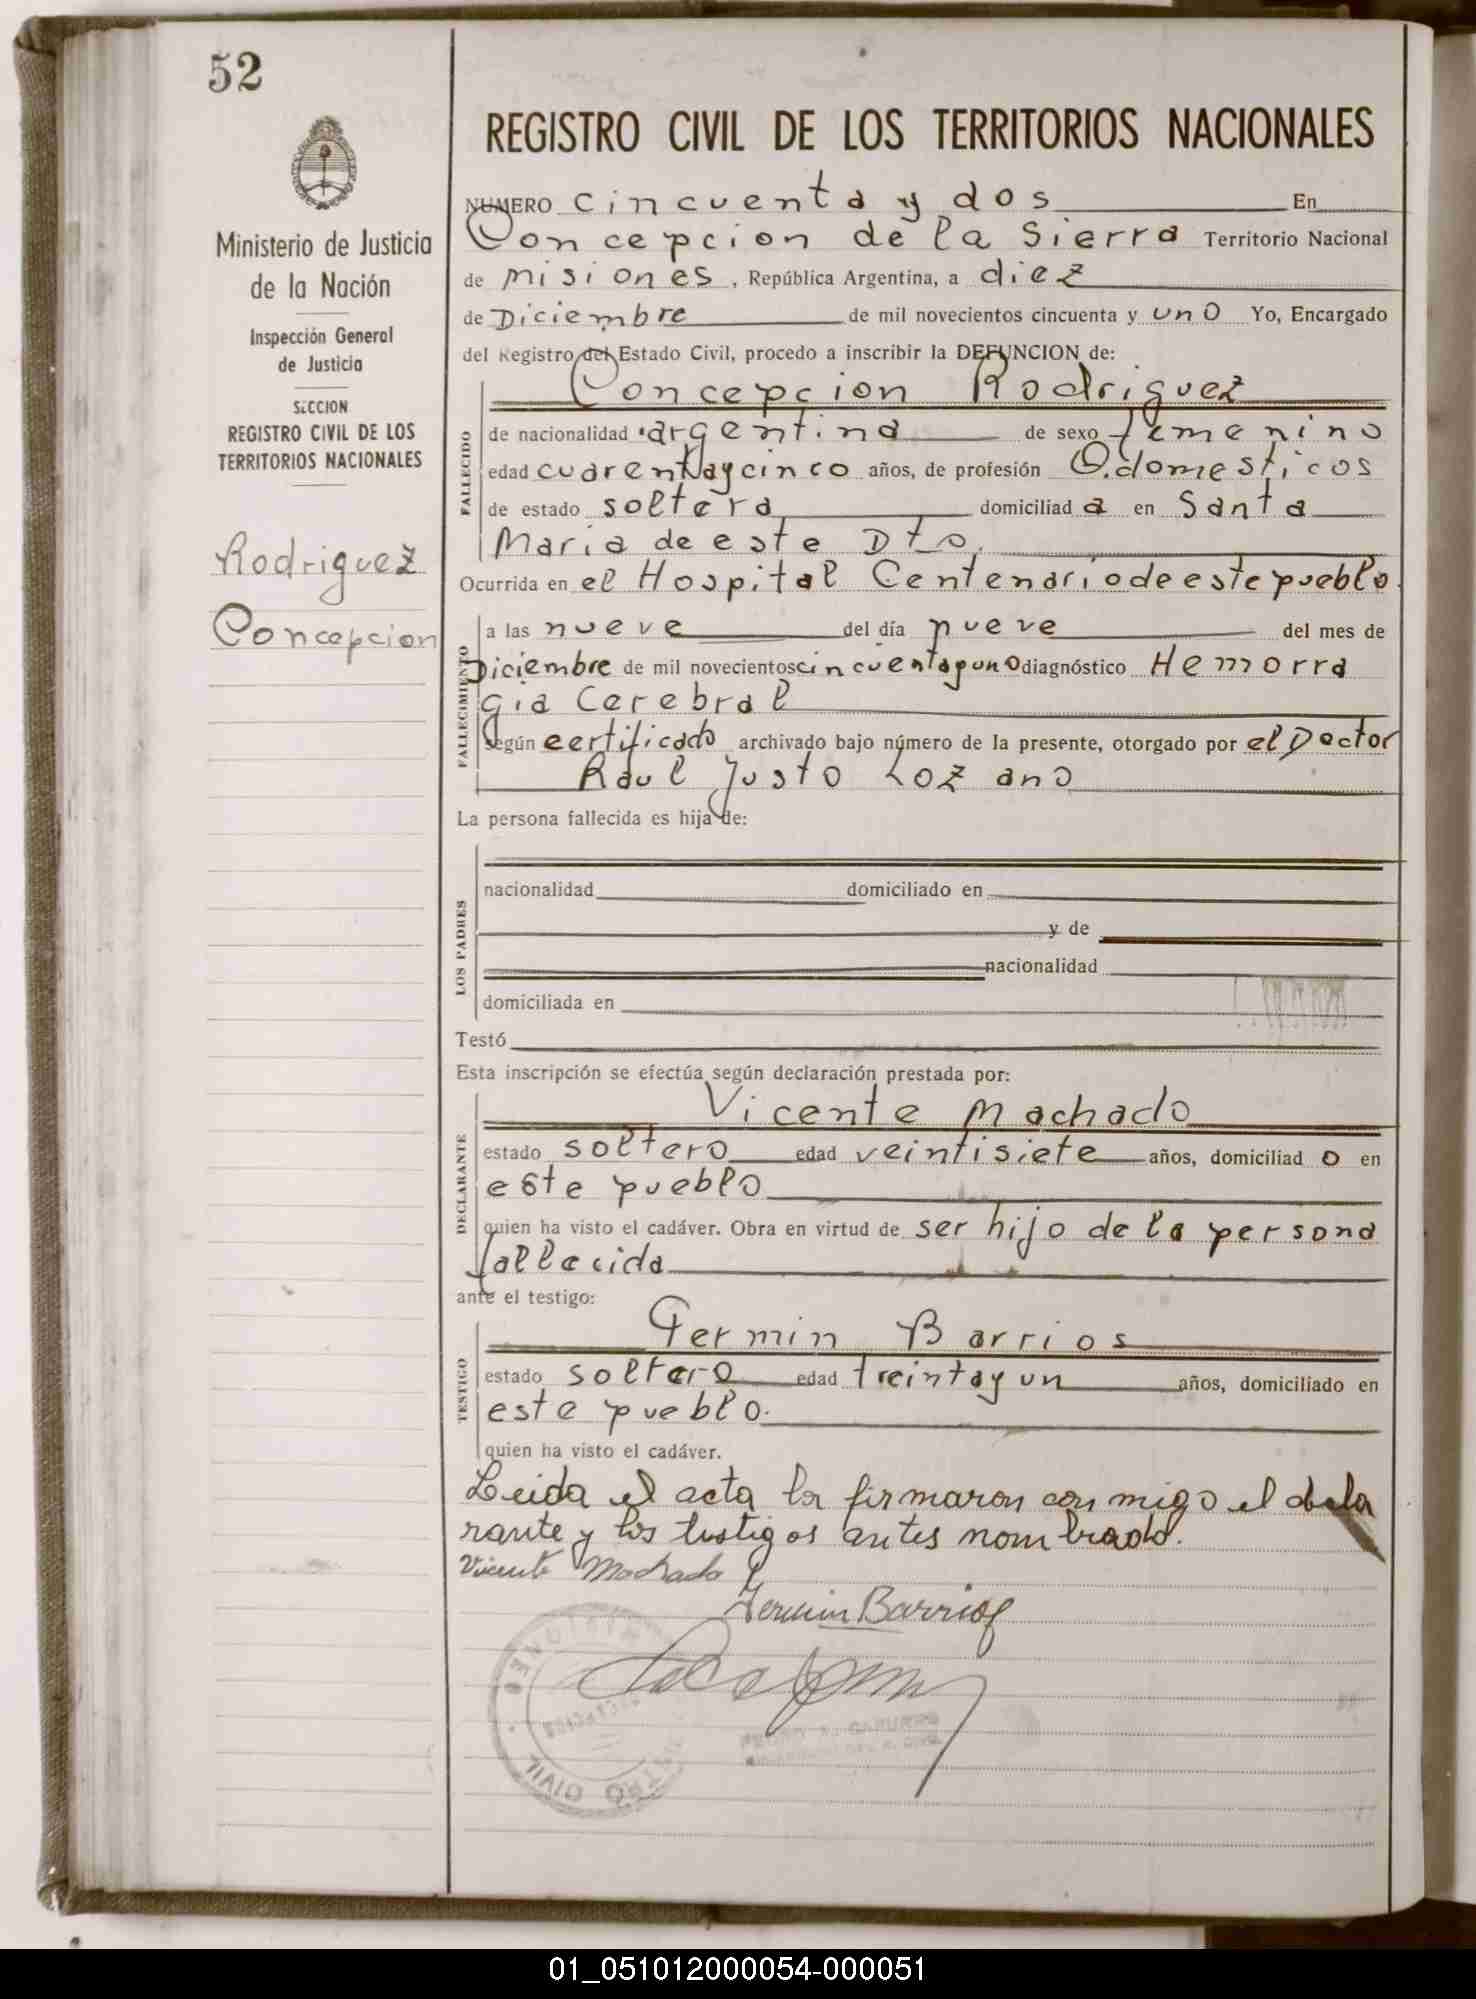 52
REGISTRO CIVIL DE LOS TERRITORIOS NACIONALES
Ministerio de Justicia
de la Nación
Inspección General
de Justicia
SECCION
REGISTRO CIVIL DE LOS
TERRITORIOS NACIONALES
Rodriguez
Concepcion
NUMERO cincuenta y dos En
Concepcion de la Sierra Territorio Nacional
de misiones, República Argentina, a diez
de Diciembre de mil novecientos cincuenta y uno Yo, Encargado
del Registro del Estado Civil, procedo a inscribir la DEFUNCION de:
Concepcion Rodriguez
FALLECIDO
de nacionalidad argentina de sexo femenino
edad cuarentaycinco años, de profesión Q.domesticos
de estado soltera domiciliad a en Santa
Maria de este Dto.
Ocurrida en el Hospital Centenario de este pueblo.
FALLECIMIENTO
a las nueve del día nueve del mes de
Diciembre de mil novecientos cincuentayuno diagnóstico Hemorra
gia Cerebral
según certificado archivado bajo número de la presente, otorgado por el Doctor
Raul Justo Lozano
La persona fallecida es hija de:
LOS PADRES
nacionalidad domiciliado en
y de
nacionalidad
domiciliada en
Testó
Esta inscripción se efectúa según declaración prestada por:
Vicente Machado
DECLARANTE
estado soltero edad veintisiete años, domiciliad o en
este pueblo
quien ha visto el cadáver. Obra en virtud de ser hijo de la persona
fallecida
ante el testigo:
Fermin Barrios
TESTIGO
estado soltero edad treintayun años, domiciliado en
este pueblo.
quien ha visto el cadáver.
Leida el acta la firmaron con migo el decla
rante y los testigos antes nombrado.
Vicente Machado
Fermin Barrios
MISIONES
CONCEPCION
CIVIL
01_051012000054-000051